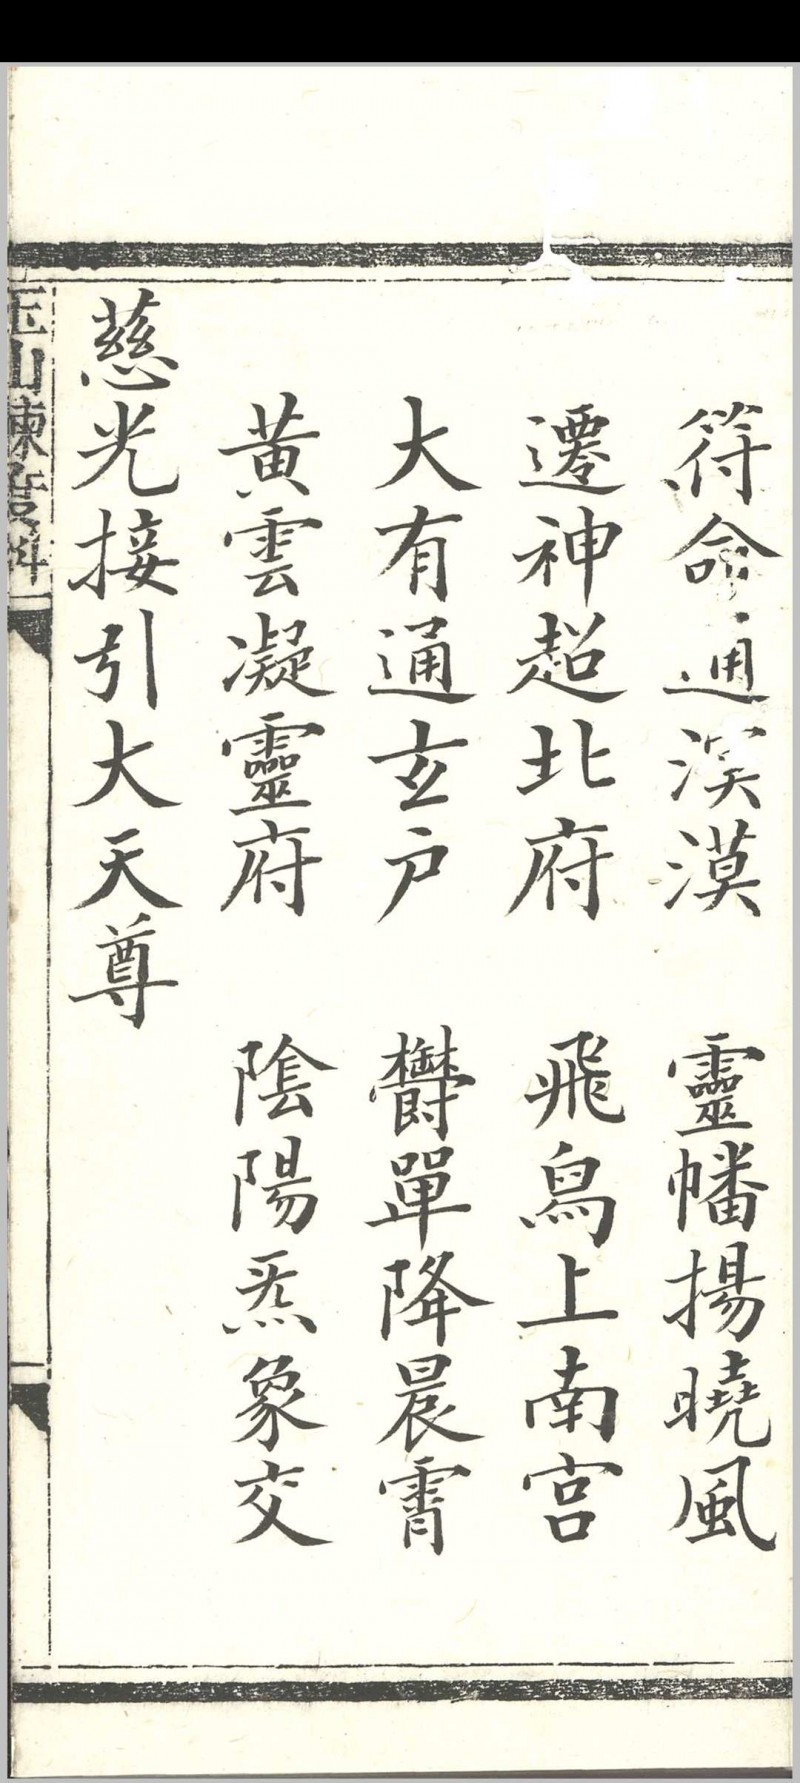 符命通溟漠　靈幡揚曉風
遷神超北府　飛鳥上南宫
大有通玄户　欝單降晨霄
黄雲凝靈府　陰陽炁象交
慈光接引大天尊
玉山煉度科